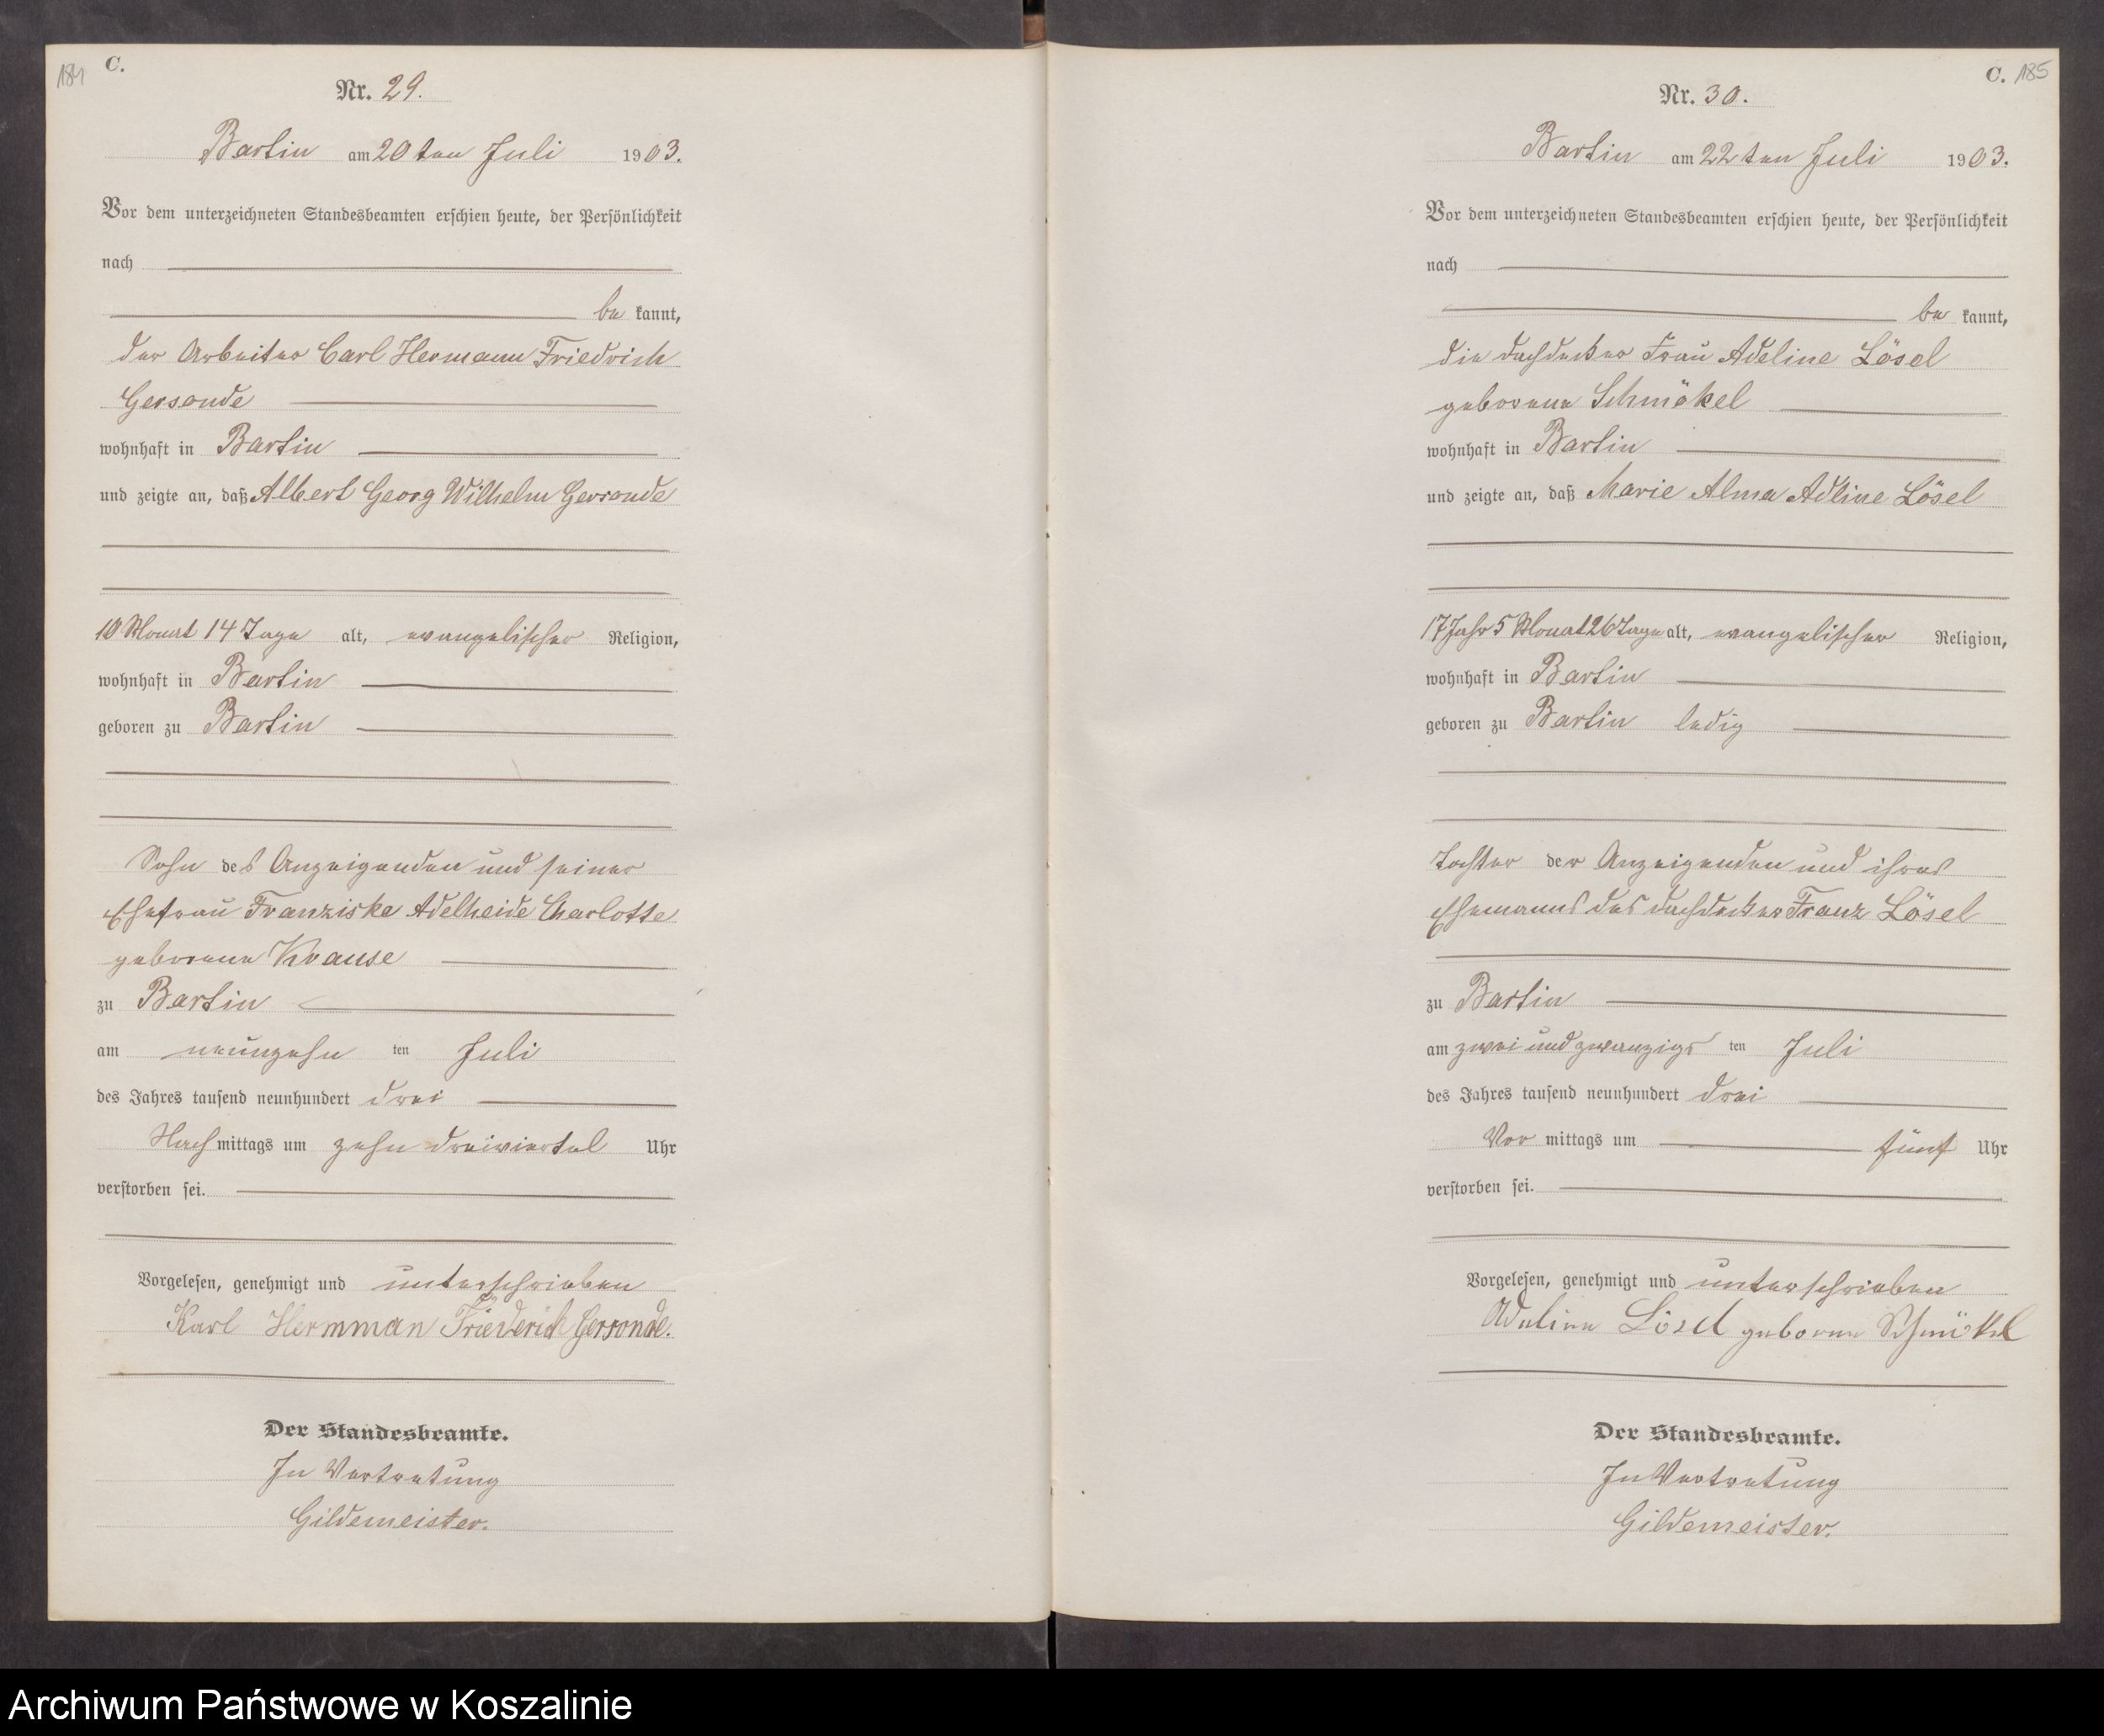 184
C.
Nr. 29.
Bartin am 20ten Juli 1903.
Vor dem unterzeichneten Standesbeamten erschien heute, der Persönlichkeit
nach
be kannt,
der Arbeiter Carl Hermann Friedrich
Gersonde
wohnhaft in Bartin
und zeigte an, daß Albert Georg Wilhelm Gersonde
10 Monat 14 Tage alt, evangelischer Religion,
wohnhaft in Bartin
geboren zu Bartin
Sohn des Anzeigenden und seiner
Ehefrau Franziske Adelheide Charlotte
geborene Krause
zu Bartin
am neunzehn ten Juli
des Jahres tausend neunhundert drei
Nach mittags um zehn dreiviertel Uhr
verstorben sei.
Vorgelesen, genehmigt und unterschrieben
Karl Hermman Friederich Gersonde.
Der Standesbeamte.
In Vertretung
Gildemeister.
C. 185
Nr. 30.
Bartin am 22ten Juli 1903.
Vor dem unterzeichneten Standesbeamten erschien heute, der Persönlichkeit
nach
be kannt,
die Dachdecker Frau Adeline Lösel
geborene Schmökel
wohnhaft in Bartin
und zeigte an, daß Marie Alma Adline Lösel
17 Jahr 5 Monat 26 Tage alt, evangelischer Religion,
wohnhaft in Bartin
geboren zu Bartin ledig
Tochter der Anzeigenden und ihres
Ehemanns des Dachdecker Franz Lösel
zu Bartin
am zwei und zwanzigs ten Juli
des Jahres tausend neunhundert drei
Vor mittags um fünf Uhr
verstorben sei.
Vorgelesen, genehmigt und unterschrieben
Adeline Lösel geborne Schmökel
Der Standesbeamte.
In Vertretung
Gildemeister.
Archiwum Państwowe w Koszalinie